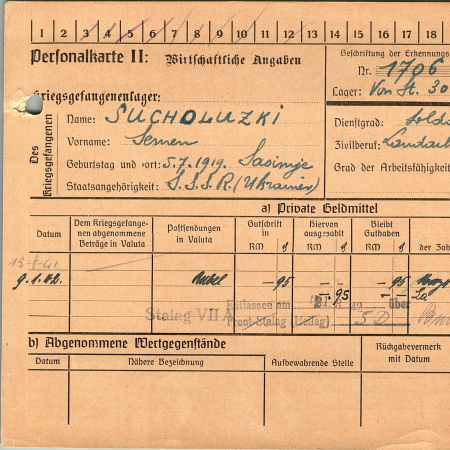 1 2 3 4 5 6 7 8 9 10 11 12 13 14 15 16 17 18
Personalkarte II: Wirtschaftliche Angaben
Beschriftung der Erkennungs
Nr. 1706
Lager: Von St. 30
Kriegsgefangenenlager:
Des Kriegsgefangenen
Name: SUCHOLUZKI
Vorname: Semen
Geburtstag und -ort: 5.7.1919.
Staatsangehörigkeit: S.S.S.R. (Ukrainer)
Dienstgrad: Sold
Zivilberuf: Landarb
Grad der Arbeitsfähigkeit
a) Private Geldmittel
Datum
Dem Kriegsgefangenen abgenommene Beträge in Valuta
Postsendungen in Valuta
Gutschrift in RM ₰
Hiervon ausgezahlt RM ₰
Bleibt Guthaben RM ₰
der Zah
9.1.42. Rubel - 95 - - - 95
- 95 -
Stalag VII A
Entlassen am über
Front-Stalag (Oflag)
b) Abgenommene Wertgegenstände
Datum
Nähere Bezeichnung
Aufbewahrende Stelle
Rückgabevermerk mit Datum